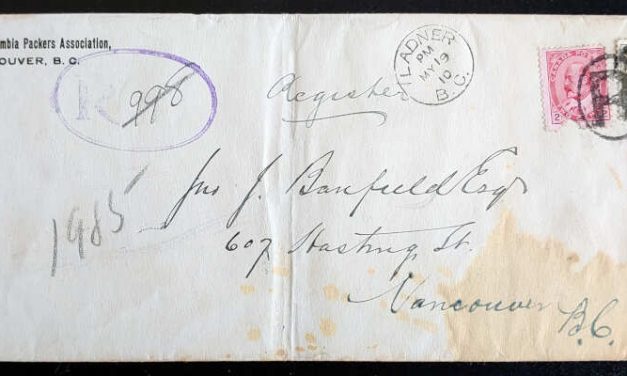 mbia Packers Association,
OUVER, B. C.
R
998
Register
LADNER
PM
MY 19
10
B.C.
CANADA POSTAGE
2
R
Jno J. Banfield Esq
607 Hastings St.
Vancouver
B.C.
1985